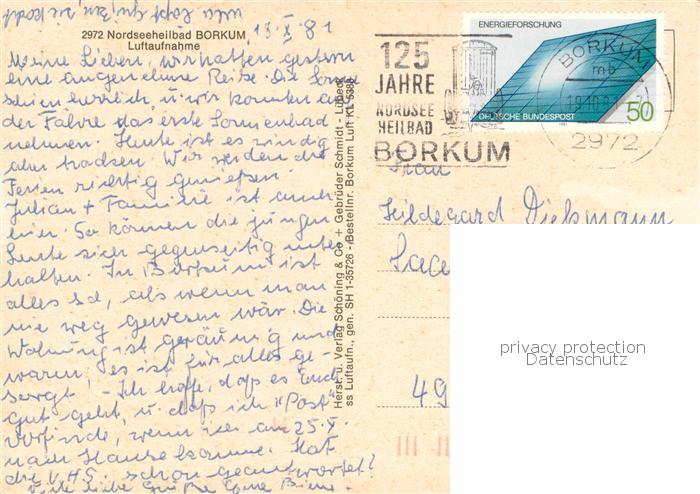 18. X. 81
2972 Nordseeheilbad BORKUM
Luftaufnahme
Meine Lieben, wir hatten gestern
eine angenehme Reise. Die Sonne
schien herrlich, u. wir konnten auf
der Fähre das erste Sonnenbad
nehmen. Heute ist es windig
aber trocken. Wir werden die
Ferien richtig genießen.
Julian + Familie ist auch
hier. So können die jungen
Leute sich gegenseitig unter
halten. In Borkum ist
alles so, als wenn man
nie weg gewesen wär. Die
Wohnung ist geräumig und
warm, es ist für alles ge-
sorgt - Ich hoffe, daß es Euch
gut geht, u. daß ich "Post"
vorfinde, wenn ich am 25. X.
nach Hause komme. Hat
die V.H.S. schon geantwortet?
Viele liebe Grüße Eure
Herst. u. Verlag Schöning & Co + Gebrüder Schmidt - Lübeck
ss Luftaufn., gen. SH 1-35726 - Bestellnr. Borkum Luft KL 5388
ENERGIEFORSCHUNG
DEUTSCHE BUNDESPOST
50
125
JAHRE
NORDSEE
HEILBAD
BORKUM
BORKUM
mb
2972
Frau
Hildegard Diekmann
49
privacy protection
Datenschutz